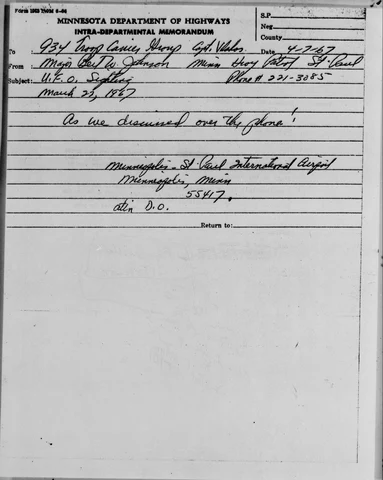 MINNESOTA DEPARTMENT OF HIGHWAYS
INTRA-DEPARTMENTAL MEMORANDUM
S.P.
Neg.
County
To 934 Troop Carrier Group Capt. Date 4-7-67
From Major Johnson Minn Hwy Patrol St. Paul
Subject: U.F.O. Sighting Phone # 221-3085
March 25, 1967
As we discussed over the phone!
Minneapolis - St Paul International Airport
Minneapolis, Minn
55417.
attn D.O.
Return to: